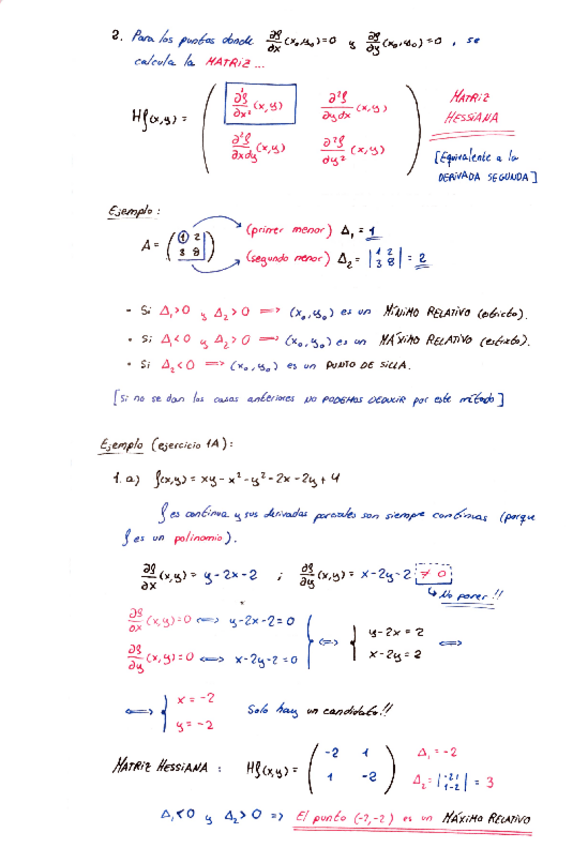 2. Para los puntos donde ∂f/∂x (x₀,y₀)=0 y ∂f/∂y (x₀,y₀)=0, se
calcula la MATRIZ...
Hf(x,y) = ( ∂²f/∂x² (x,y) ∂²f/∂y∂x (x,y)
∂²f/∂x∂y (x,y) ∂²f/∂y² (x,y) )
MATRIZ
HESSIANA
[Equivalente a la
DERIVADA SEGUNDA]
Ejemplo:
A = ( 1 2
3 8 )
(primer menor) Δ₁ = 1
(segundo menor) Δ₂ = | 1 2
3 8 | = 2
- Si Δ₁>0 y Δ₂>0 ⟹ (x₀,y₀) es un MÍNIMO RELATIVO (estricto).
- Si Δ₁<0 y Δ₂>0 ⟹ (x₀,y₀) es un MÁXIMO RELATIVO (estricto).
- Si Δ₂<0 ⟹ (x₀,y₀) es un PUNTO DE SILLA.
[Si no se dan los casos anteriores NO PODEMOS DEDUCIR por este método]
Ejemplo (ejercicio 1A):
1. a) f(x,y) = xy - x² - y² - 2x - 2y + 4
f es continua y sus derivadas parciales son siempre continuas (porque
f es un polinomio).
∂f/∂x (x,y) = y-2x-2 ; ∂f/∂y (x,y) = x-2y-2 ≠ 0
No poner!!
∂f/∂x (x,y)=0 ⟺ y-2x-2=0
∂f/∂y (x,y)=0 ⟺ x-2y-2=0
} ⟺ { y-2x = 2
x-2y = 2 ⟺
⟺ { x = -2
y = -2
Solo hay un candidato!!
MATRIZ HESSIANA : Hf(x,y) = ( -2 1
1 -2 )
Δ₁ = -2
Δ₂ = | -2 1
1 -2 | = 3
Δ₁<0 y Δ₂>0 ⟹ El punto (-2,-2) es un MÁXIMO RELATIVO